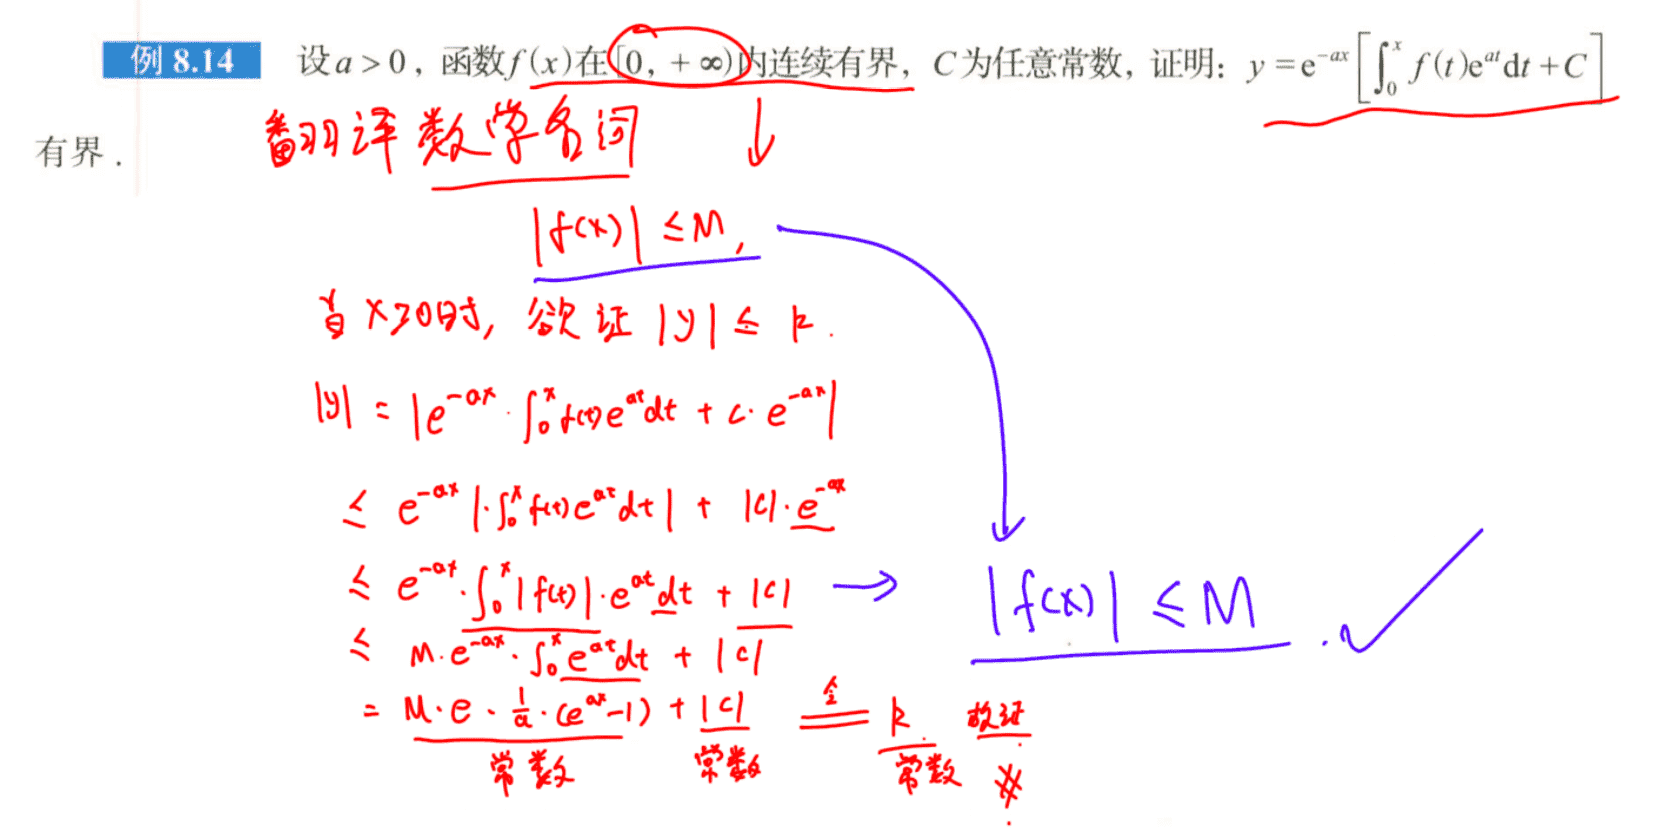 例 8.14 设a>0, 函数f(x)在[0, +∞)内连续有界, C为任意常数, 证明: y=e^{-ax}[∫_0^x f(t)e^{at}dt+C]
有界.
翻译数学名词
|f(x)| ≤ M,
当x≥0时, 欲证 |y| ≤ k.
|y| = |e^{-ax}·∫_0^x f(t)e^{at}dt + c·e^{-ax}|
≤ e^{-ax}|·∫_0^x f(t)e^{at}dt| + |c|·e^{-ax}
≤ e^{-ax}·∫_0^x |f(t)|·e^{at}dt + |c| → |f(x)| ≤ M.
≤ M·e^{-ax}·∫_0^x e^{at}dt + |c|
= M·e·1/a·(e^{ax}-1) + |c| 令= k. 故证
常数 常数 常数 #